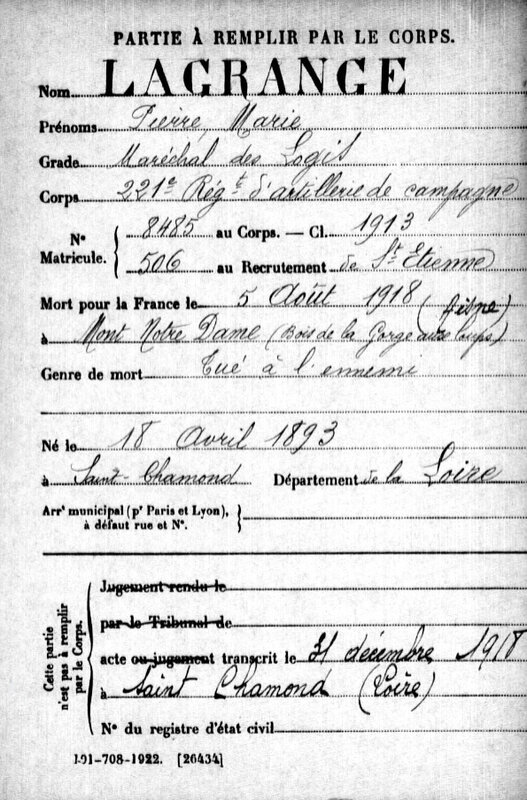 PARTIE À REMPLIR PAR LE CORPS.
Nom LAGRANGE
Prénoms Pierre, Marie
Grade Maréchal des Logis
Corps 221e Régt d'artillerie de campagne
N° Matricule. { 8485 au Corps. — Cl. 1913
506 au Recrutement de St Etienne
Mort pour la France le 5 Août 1918 (Aisne)
à Mont Notre Dame (Bois de la Gorge aux loups)
Genre de mort Tué à l'ennemi
Né le 18 Avril 1893
à Saint-Chamond Département de la Loire
Arrt municipal (pr Paris et Lyon), à défaut rue et N°. }
Cette partie n'est pas à remplir par le Corps. {
Jugement rendu le
par le Tribunal de
acte ou jugement transcrit le 31 décembre 1918
à Saint Chamond (Loire)
N° du registre d'état civil
191-708-1922. [26434]